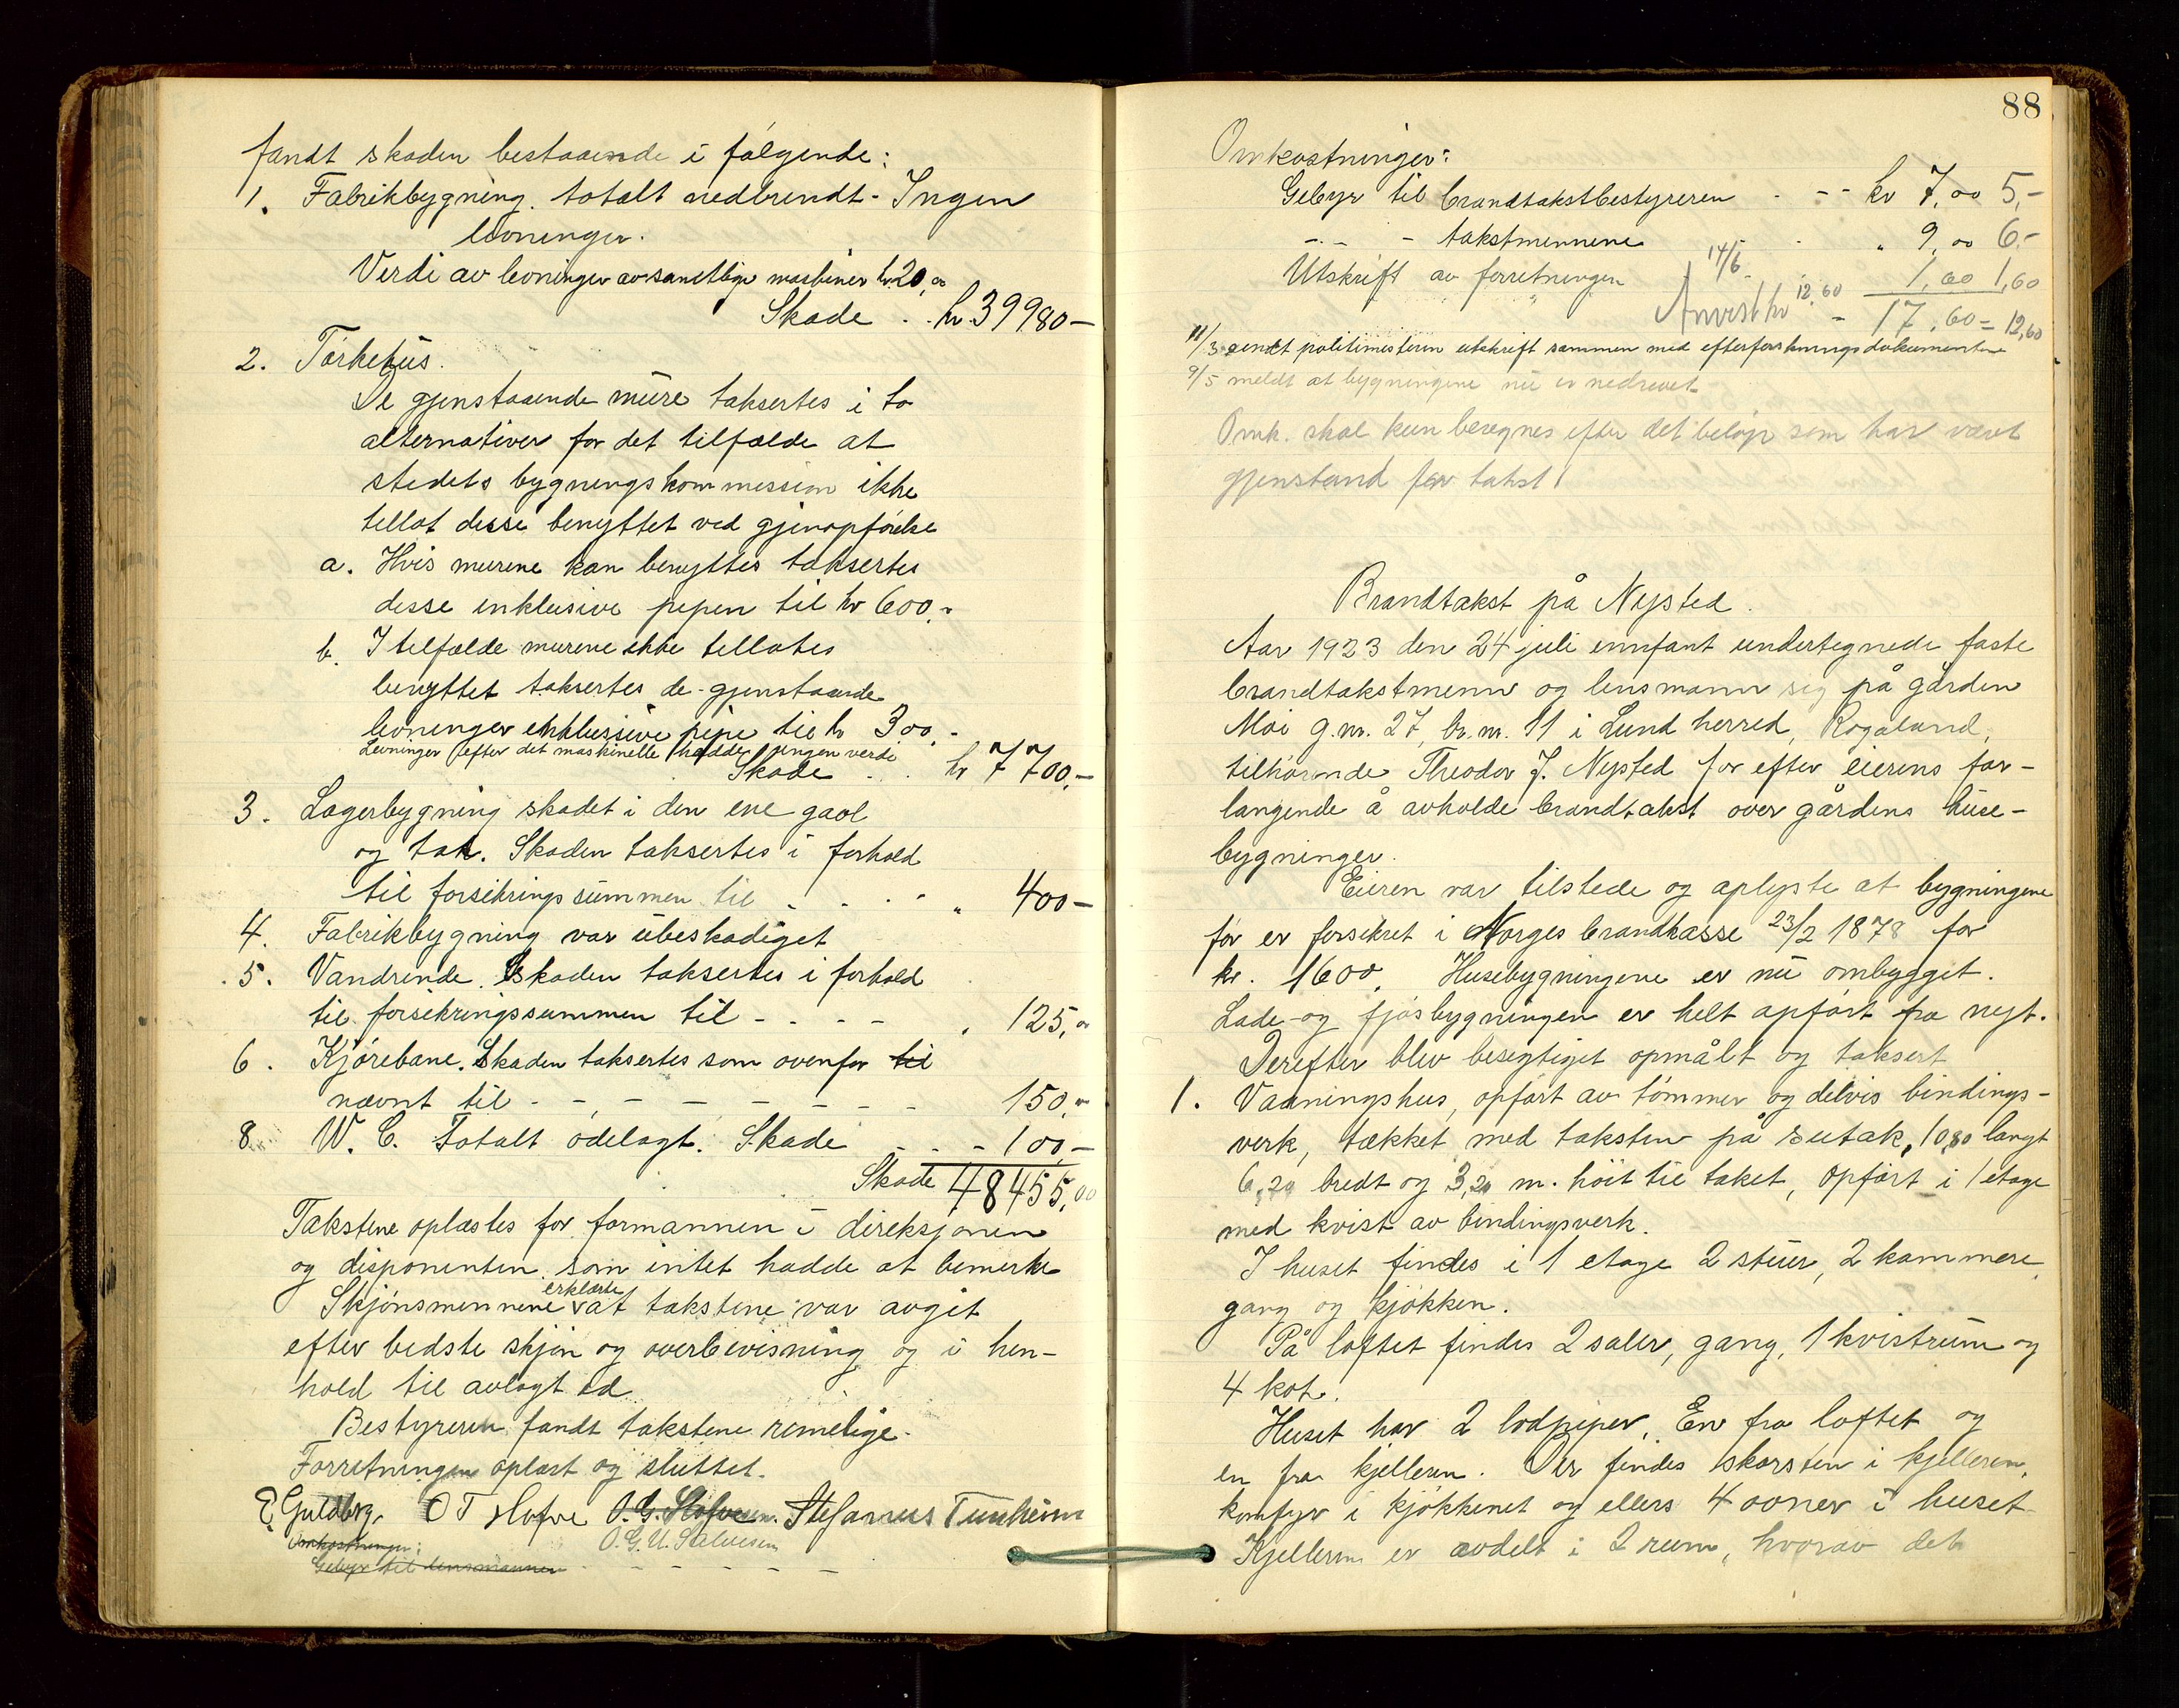 fandt skaden bestaaende i følgende:
1. Fabrikbygning. totalt nedbrendt - Ingen
levninger.
Verdi av levninger av samtlige maskiner kr. 20,00
Skade . . kr. 39980 -
2. Tørkehus.
De gjenstaaende mure taksertes i to
alternativer for det tilfælde at
stedets bygningskommission ikke
tillot disse benyttet ved gjenopførelse
a. Hvis murene kan benyttes taksertes
disse inklusive pipen til kr 600,-
b. I tilfælde murene ikke tillates
benyttet taksertes de gjenstaaende
levninger inklussive pipe til kr 300,-
Levninger efter det maskinelle hadde ingen verdi
Skade . . kr 7700,-
3. Lagerbygning skadet i den ene gavl
og tak. Skaden taksertes i forhold
til forsikringssummen til - - - - " 400 -
4. Fabrikbygning var ubeskadiget
5. Vandrende. Skaden taksertes i forhold
til forsikringssummen til - - - - " 125,00
6. Kjørebane. Skaden taksertes som ovenfor til
nævnt til - - - - - - - - 150,00
8. W. C. Totalt ødelagt. Skade - - - 100,-
Skade 48455,00
Takstene oplæstes for formannen i direksjonen
og disponenten som intet hadde at bemerke
Skjønsmennene erklærte at takstene var avgit
efter bedste skjøn og overbevisning og i hen-
hold til avlagt ed.
Bestyreren fandt takstene rimelige.
Forretningen oplæst og sluttet.
E. Guldbrg. O T Hofve O. G. Stefanus Tunheim
O. G. U. Salvesen
Omkostninger:
Gebyr til lensmannen - - - - -
88
Omkostninger:
Gebyr til brandtakstbestyreren - - - kr 7,00 5,-
-"- - takstmennene - " 9,00 6,-
Utskrift av forretningen 14/6 1,60 1,60
Anvist kr 12,60 - 17,60 = 12,60
11/3 sendt politimesteren utskrift sammen med efterforskningsdokumentene
9/5 meldt at bygningene nu er nedrevet
Omk. skal kun beregnes efter det beløp som har været
gjenstand for takst!
Brandtakst på Nysted.
Aar 1923 den 24 juli innfant undertegnede faste
brandtakstmenn og lensmann sig på gården
Moi g.nr. 27, br.nr. 11 i Lund herred, Rogaland,
tilhørende Theodor J. Nysted for efter eierens for-
langende å avholde brandtakst over gårdens huse-
bygninger.
Eieren var tilstede og oplyste at bygningene
før er forsikret i Norges brandkasse 23/2 1878 for
kr. 1600. Husebygningene er nu ombygget.
Lade- og fjøsbygningen er helt opført fra nyt.
Derefter blev besigtiget opmålt og taksert
1. Vaaningshus, opført av tømmer og delvis bindings-
verk, tækket med taksten på sutak, 10,80 langt
6,20 bredt og 3,20 m. høit til taket, opført i 1 etage
med kvist av bindingsverk.
I huset findes i 1 etage 2 stuer, 2 kammere,
gang og kjøkken.
På loftet findes 2 saler, gang, 1 kvistrum og
4 kot.
Huset har 2 lodpiper. En fra loftet og
en fra kjelleren. Der findes skorsten i kjelleren,
komfyr i kjøkkenet og ellers 4 ovner i huset
Kjelleren er avdelt i 2 rum, hvorav det